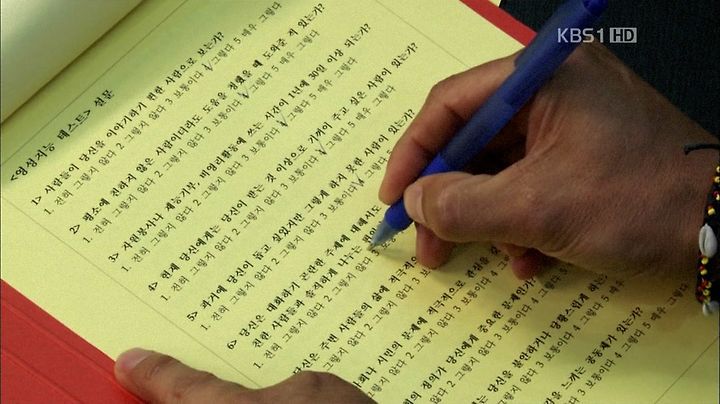 KBS1 HD
<영성지능 테스트> 설문
1> 사람들이 당신을 이야기하기 편한 사람으로 보는가?
1. 전혀 그렇지 않다 2 그렇지 않다 3 보통이다 4 그렇다 5 매우 그렇다
2> 평소에 친하지 않은 사람이더라도 도움을 청했을 때 도와줄 수 있는가?
1. 전혀 그렇지 않다 2 그렇지 않다 3 보통이다 4 그렇다 5 매우 그렇다
3> 자원봉사나 재능기부, 비영리활동에 쓰는 시간이 1년에 30일 이상 되는가?
1. 전혀 그렇지 않다 2 그렇지 않다 3 보통이다 4 그렇다 5 매우 그렇다
4> 현재 당신에게는 당신이 받는 것 이상으로 기꺼이 주고 싶은 사람이 있는가?
1. 전혀 그렇지 않다 2 그렇지 않다 3 보통이다 4 그렇다 5 매우 그렇다
5> 과거에 당신이 돕고 싶었지만 그렇게 하지 못한 사람이 있는가?
1. 전혀 그렇지 않다 2 그렇지 않다 3 보통이다 4 그렇다
6> 당신은 대화하기 곤란한 주제에 대해서도
친한 사람들과 솔직하게 나누는
1. 전혀 그렇지 않다 2 그렇지 않다
당신은 주변 사람들의 삶에 적극적으
그렇지 않다 2 그렇지 않다 3 보통이다 4 그렇다
시민의 문제에 적극적으로 관심을
않다 2 그렇지 않다 3 보통이다
정의가 당신에게 중요한 문제인가?
2 그렇지 않다 3 보통이다 4 그렇다 5 매우
당신을 불안하거나 당황스럽게 하는
않다 3 보통이다 4 그렇다 5 매우 그렇다
느끼는 공동체가 있는가?
3 보통이다 4 그렇다 5 매우 그렇다